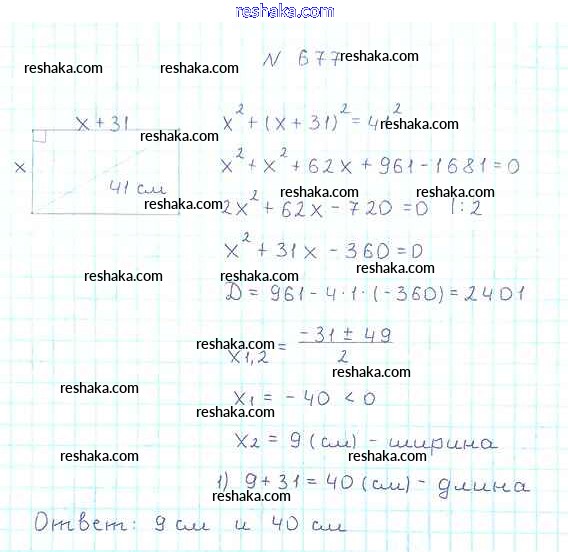 reshaka.com
N 677 reshaka.com
reshaka.com reshaka.com
x + 31
x² + (x + 31)² = 41²
reshaka.com reshaka.com
x
x² + x² + 62x + 961 - 1681 = 0
41 см
reshaka.com reshaka.com
reshaka.com
2x² + 62x - 720 = 0 |:2
x² + 31x - 360 = 0
reshaka.com reshaka.com
D = 961 - 4·1·(-360) = 2401
reshaka.com
x1,2 = (-31 ± 49) / 2
reshaka.com
reshaka.com
x1 = -40 < 0
reshaka.com
x2 = 9 (см) - ширина
reshaka.com reshaka.com
1) 9 + 31 = 40 (см) - длина
reshaka.com
Ответ: 9 см и 40 см